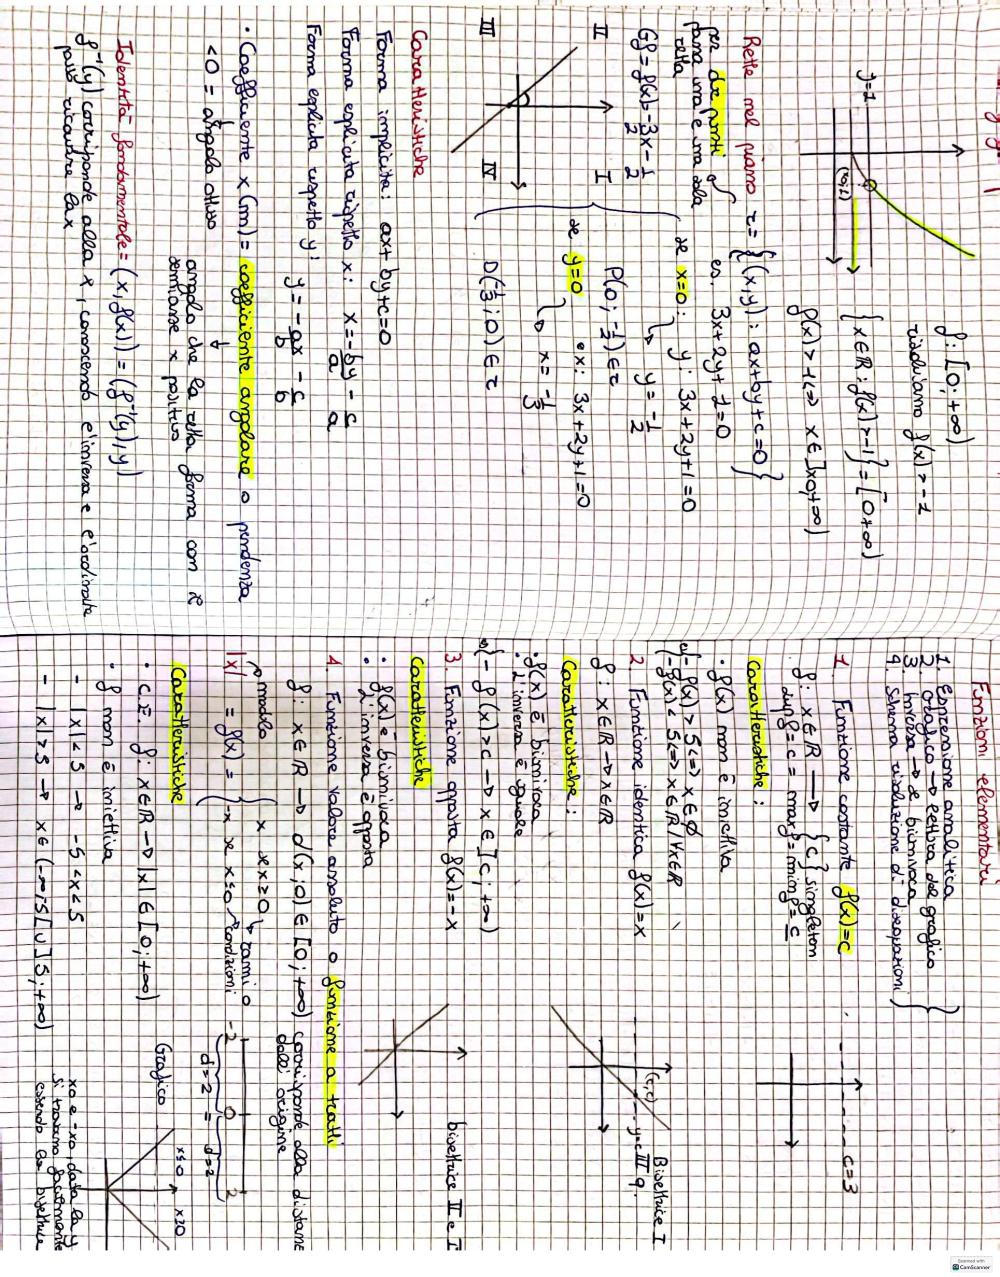 y=1
(x0;1)
f: [0;+∞)
risolviamo f(x)>-1
{x∈R: f(x)>-1} = [0+∞)
f(x)>-1 <=> x∈]x0;+∞)
Rette nel piano r={(x,y): ax+by+c=0}
per due punti
passa una e una sola
retta
es. 3x+2y+1=0
Gf = f(x)=-3x-1
2 2
se x=0: y: 3x+2y+1=0
y=-1
2
P(0;-1/2)∈r
se y=0 x: 3x+2y+1=0
x=-1
3
D(-1/3;0)∈r
II I
III IV
Caratteristiche
Forma implicita: ax+by+c=0
Forma esplicita rispetto x: x=-by-c
a a
Forma esplicita rispetto y: y=-ax-c
b b
· Coefficiente x (m) = coefficiente angolare o pendenza
<0 = angolo ottuso
angolo che la retta forma con il
semiasse x positivo
Identità fondamentale = (x, f(x)) = (f⁻¹(y), y)
f⁻¹(y) corrisponde alla x, conoscendo l'inversa e l'ordinata
posso ricavare la x
Funzioni elementari
1. Espressione analitica
2. Grafico → lettura del grafico
3. Inversa → se biunivoca
4. Schema risoluzione di disequazioni
1. Funzione costante f(x)=c
f: x∈R → {c} singleton
sup f = c = max f = min f = c
c=3
Caratteristiche:
· f(x) non è iniettiva
- f(x) > 5 <=> x∈∅
- f(x) < 5 <=> x∈R / ∀x∈R
2. Funzione identica f(x)=x
f: x∈R → x∈R
Bisettrice I
III q.
(c,c)
y=c
Caratteristiche:
· f(x) è biunivoca
· L'inversa è uguale
- f(x)>c → x∈]c;+∞)
3. Funzione opposta f(x)=-x
bisettrice II e I
Caratteristiche
· f(x) è biunivoca
· L'inversa è opposta
4. Funzione valore assoluto o funzione a tratti
f: x∈R → d(x;0)∈[0;+∞) corrisponde alla distanz
dall'origine
modulo
|x| = f(x) = { x se x≥0
-x se x≤0
rami o
condizioni
-2 0 2
d=2 = d=2
Caratteristiche
· C.E. f: x∈R → |x|∈[0;+∞)
· f non è iniettiva
- |x|<5 → -5<x<5
- |x|>5 → x∈(-∞;-5[∪]5;+∞)
Grafico
x≤0 x≥0
x0 e -x0, data la y
si trovano facilmente
essendo la bisettrice
Scanned with
CamScanner